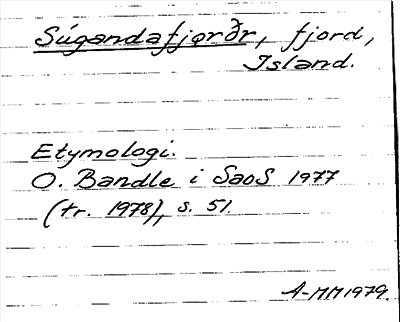 Súgandafjǫrðr, fjord,
Island.
Etymologi.
O. Bandle i SaoS 1977
(tr. 1978), s. 51.
A-MM1979.